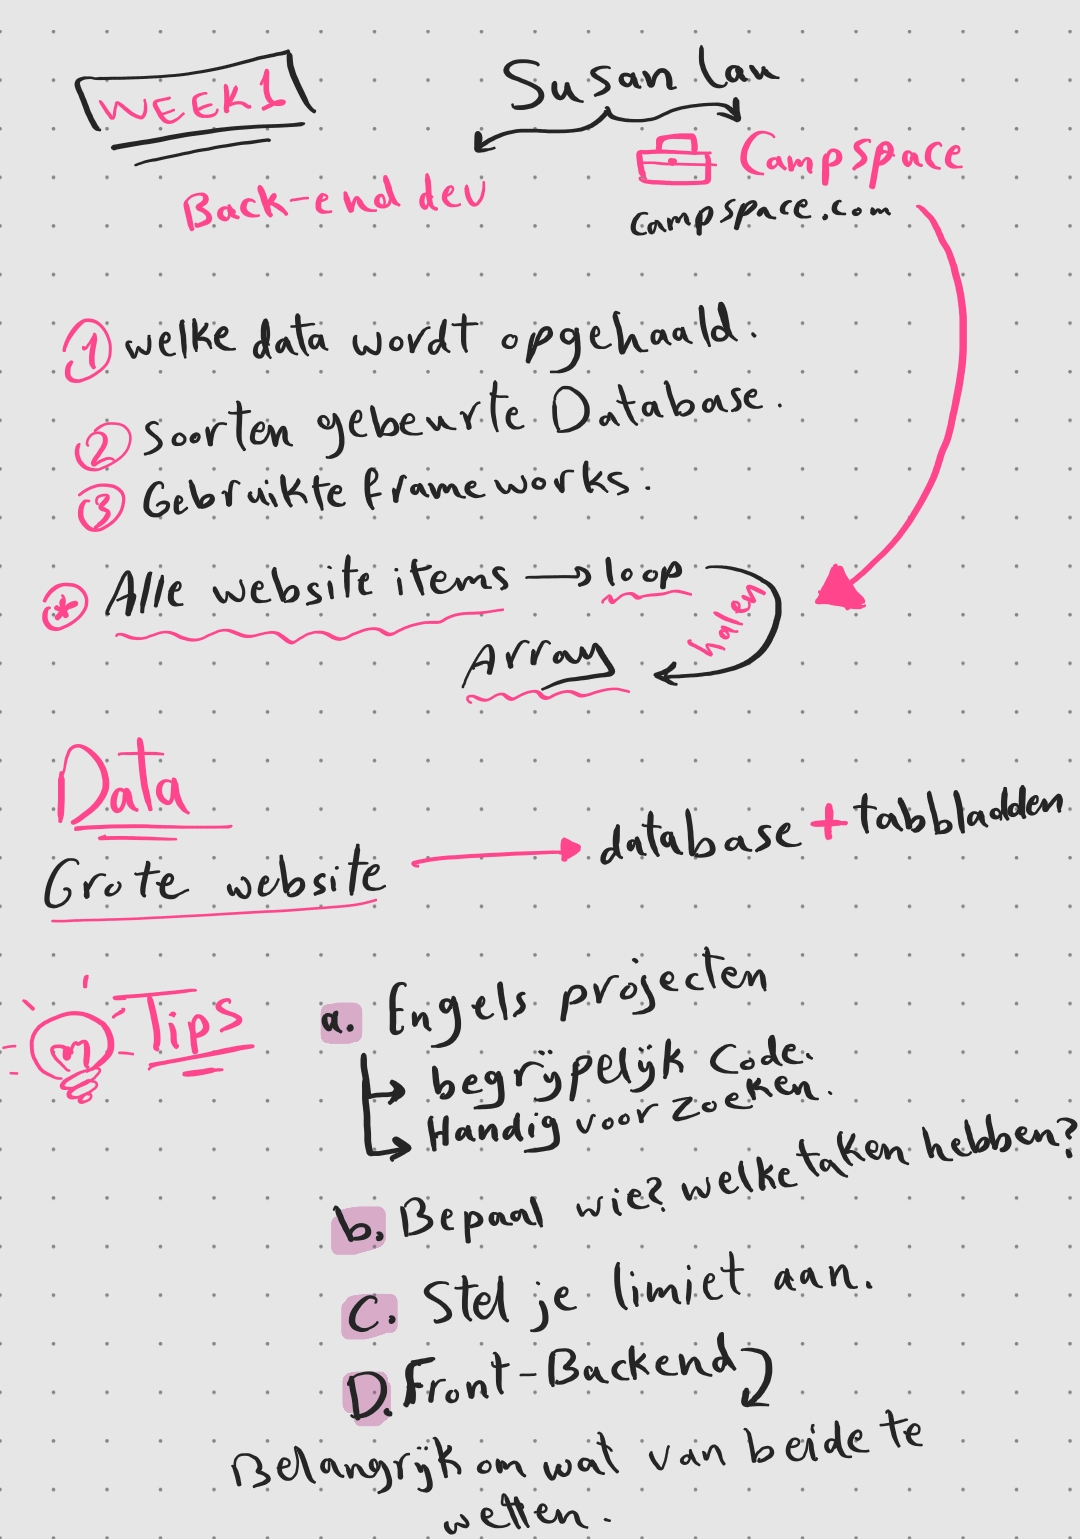 WEEK 1
Susan Lau
Back-end dev
Campspace
campspace.com
1 welke data wordt opgehaald.
2 Soorten gebeurte Database.
3 Gebruikte frameworks.
* Alle website items → loop
halen
Array
Data
Grote website → database + tabbladden
Tips
a. Engels projecten
begrijpelijk code.
Handig voor zoeken.
b. Bepaal wie? welke taken hebben?
C. Stel je limiet aan.
D. Front-Backend
Belangrijk om wat van beide te
wetten.